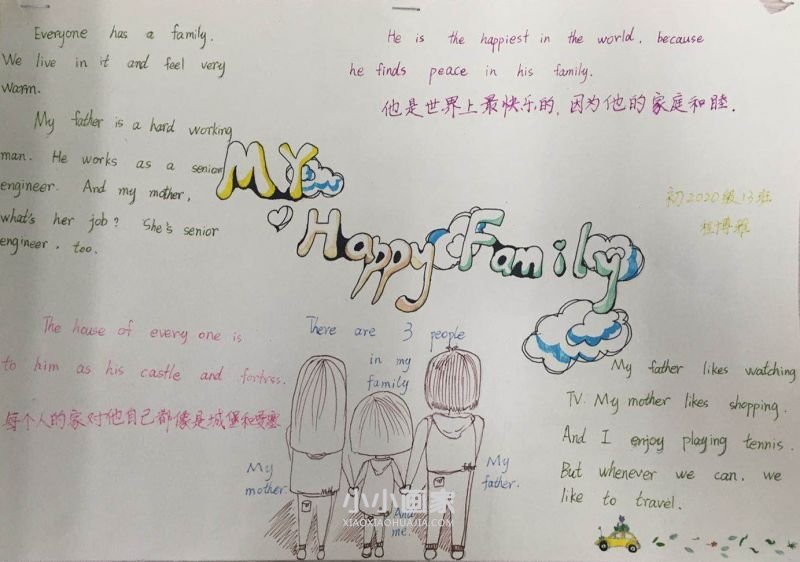 Everyone has a family.
We live in it and feel very
warm.
My father is a hard working
man. He works as a senior
engineer. And my mother,
what's her job? She's senior
engineer, too.
He is the happiest in the world, because
he finds peace in his family.
他是世界上最快乐的,因为他的家庭和睦.
初2020级13班
程博雅
MY
Happy Family
The house of every one is
to him as his castle and fortrss.
每个人的家对他自己都像是城堡和要塞
There are 3 people
in my
family
My
mother.
And
me.
My
father.
My father likes watching
TV. My mother likes shopping.
And I enjoy playing tennis.
But whenever we can, we
like to travel.
小小画家
XIAOXIAOHUAJIA.COM